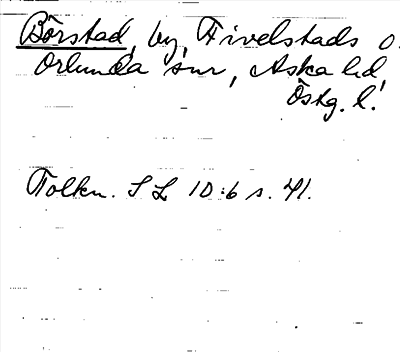 Börstad, by, Fivelstads o.
Orlunda snr, Aska hd,
Östg. l.
Tolkn. S L 10:6 s. 41.